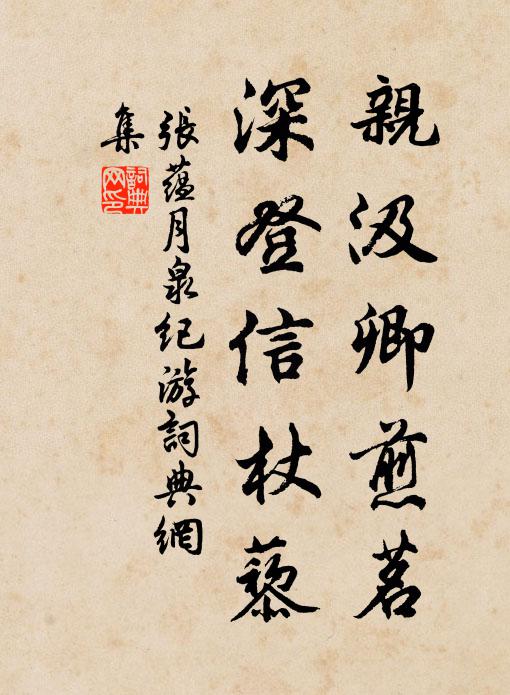 親汲卿煎茗
深登信杖藜
張蘊月泉紀游詞典網
集
詞典
网印